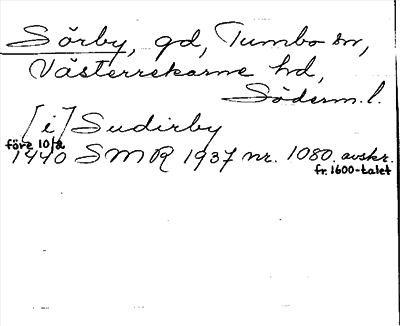 Sörby, gd, Tumbo sn,
Västerrekarne hd,
Söderm.l.
[i] Sudirby
före 10/2
1440 SMR 1937 nr. 1080. avskr.
fr. 1600-talet